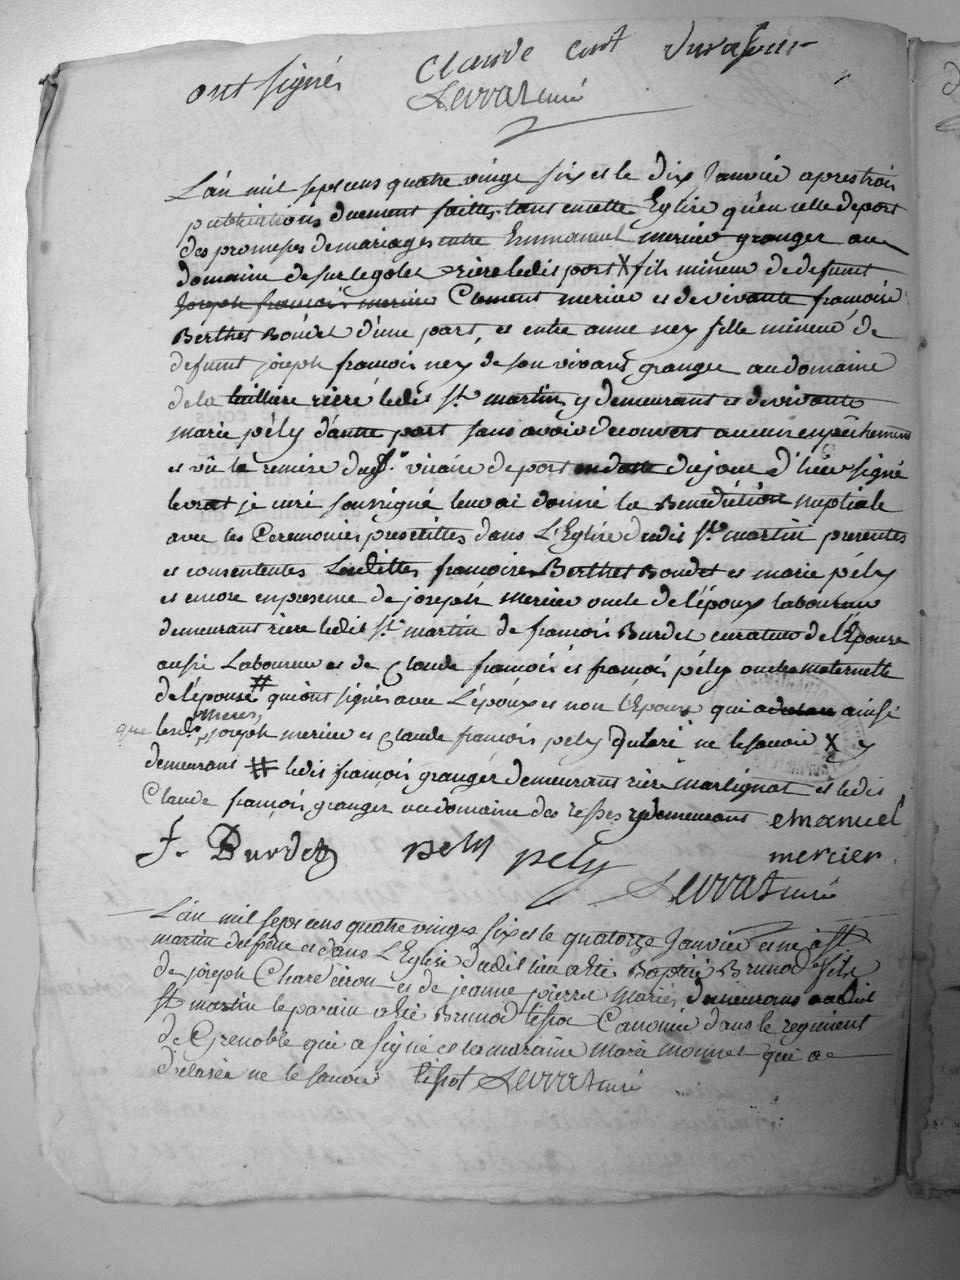 ont signés Claude cont
Levrat curé
L'an mil sept cens quatre vingt six et le dix Janvié apres trois
publications duement faittes tant en cette Eglise qu'en celle de port
des promesses de mariages entre Emmanuel mercier granger au
domaine de sur le golet rière ledit port X fils mineur de defunt
Joseph francois mercier Clement mercier et de vivante francoise
Berthet Boudet d'une part, et entre anne ney fille mineure de
defunt joseph francois ney de son vivant granger au domaine
de la tuilliere riere ledit st martin y demeurant et de vivante
marie pély d'autre part sans avoir decouvert aucun enpêchement
et vû la remise du sr vicaire de port du jour d'hier signé
levrat je curé soussigné leur ai donné la Benediction nuptiale
avec les Ceremonies prescrittes dans L'Eglise dudit st martin presentes
et consententes Lesdittes francoises Berthet Boudet et marie pély
et encore en presence de joseph mercier oncle de l'époux laboureur
demeurant riere ledit st martin de francois Burdet curateur de l'Epouse
aussi Laboureur et de Claude francois et francois pély oncles maternels
de l'épouse # qui ont signés avec L'époux et non l'Epouse qui ainsi
que lesd. meres, joseph mercier et Claude francois pély déclaré ne le savoir X y
demeurant # ledit francois granger demeurant riere martignat et ledit
Claude francois granger au domaine des y demeurant emanuel
f. Burdet pely pely mercier
Levrat curé
L'an mil sept cens quatre vingt six et le quatorze Janvié est né à st
martin du frêne et dans L'Eglise dudit lieu a été Baptisé Brunod fils
de joseph Chardeiron et de jeanne pierre mariés demeurans audit
st martin le parain a été Brunod tissot Canonier dans le regiment
de Grenoble qui a signé et la maraine marie monnet qui a
déclaré ne le savoir tissot Levrat curé